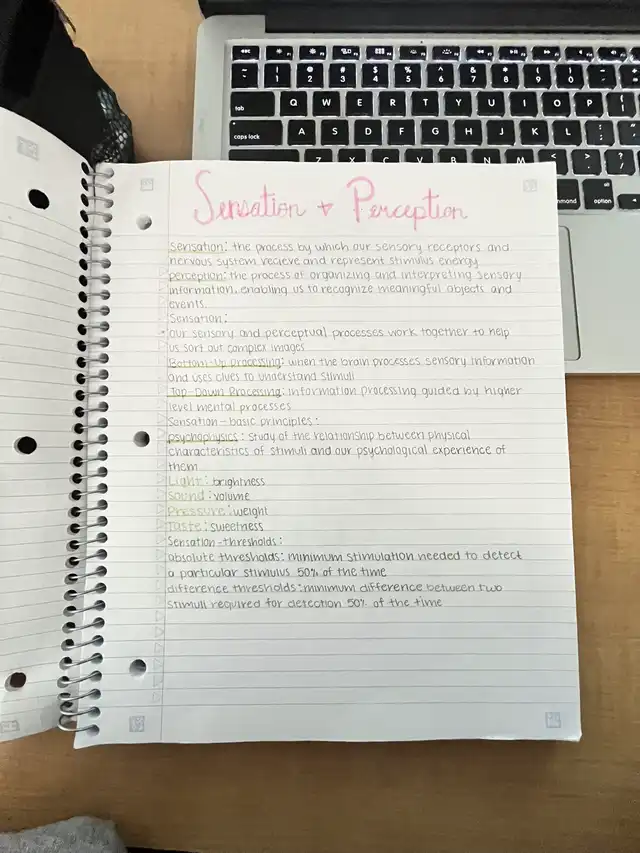 tab
Q W E R T Y U I O P
caps lock
A S D F G H J K L
Z X C V B N M
option
Sensation + Perception
Sensation: the process by which our sensory receptors and
nervous system recieve and represent stimulus energy
perception: the process of organizing and interpreting sensory
information, enabling us to recognize meaningful objects and
events.
Sensation:
our sensory and perceptual processes work together to help
us sort out complex images
Bottom-Up processing: when the brain processes sensory information
and uses clues to understand stimuli
Top-Down Processing: information processing guided by higher
level mental processes
Sensation-basic principles:
psychophysics: study of the relationship between physical
characteristics of stimuli and our psychological experience of
them
Light: brightness
Sound: volume
Pressure: weight
Taste: sweetness
Sensation-thresholds:
absolute thresholds: minimum stimulation needed to detect
a particular stimulus 50% of the time
difference thresholds: minimum difference between two
stimuli required for detection 50% of the time